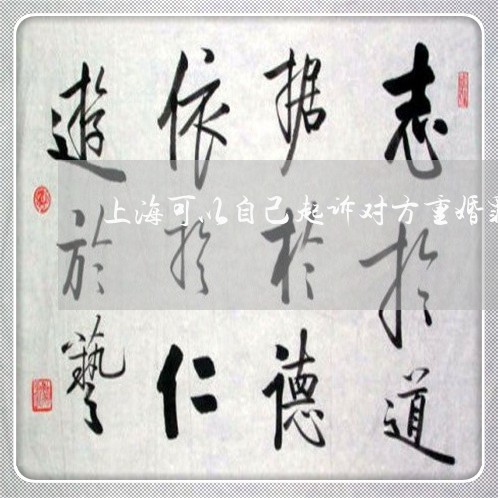 志於道
据於德
依於仁
遊於藝
上海可以自己起诉对方重婚